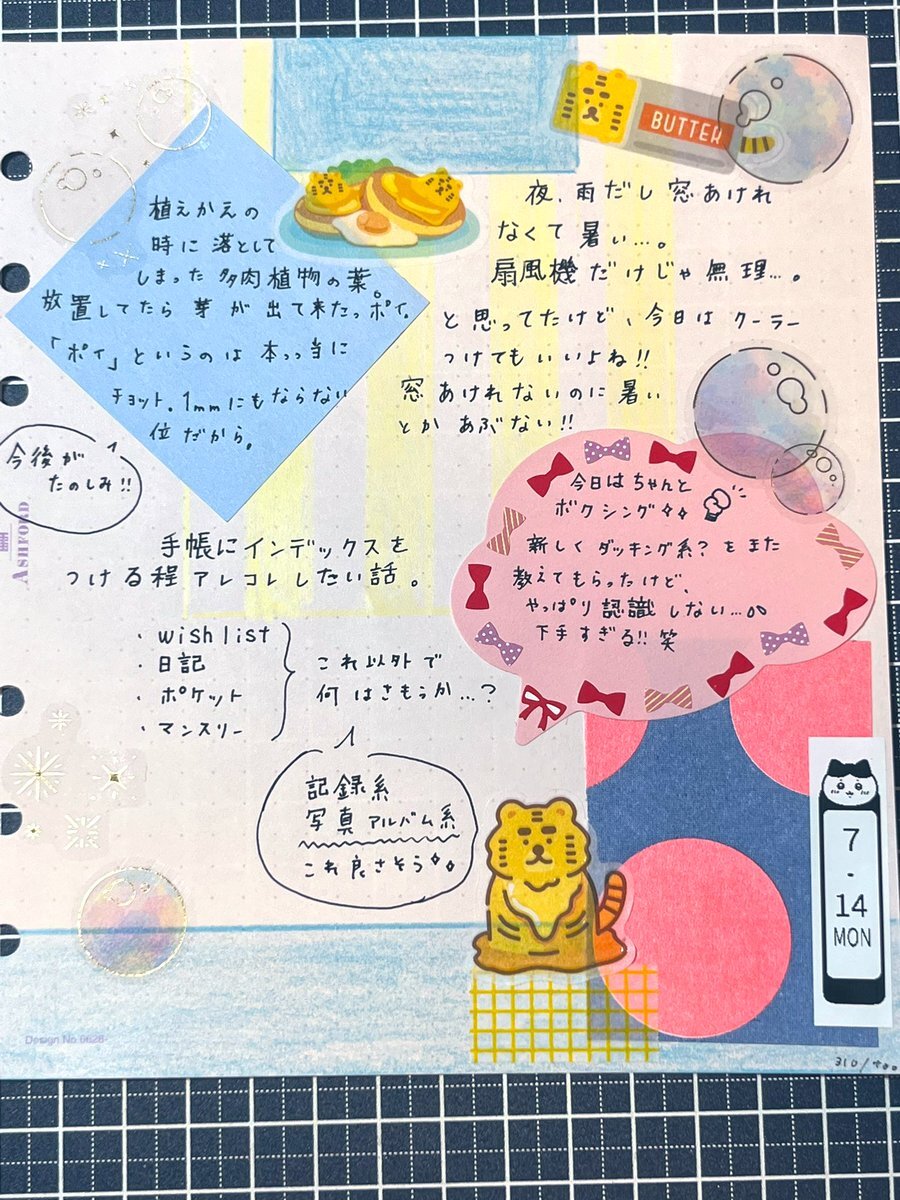 BUTTER
植えかえの
時に落として
しまった多肉植物の葉。
放置してたら芽が出て来たっポイ。
「ポイ」というのは本っ当に
チョット。1mmにもならない
位だから。
今後が
たのしみ!!
夜、雨だし窓あけれ
なくて暑い…。
扇風機だけじゃ無理…。
と思ってたけど、今日はクーラー
つけてもいいよね!!
窓あけれないのに暑い
とかあぶない!!
今日はちゃんと
ボクシング
新しくダッキング系?をまた
教えてもらったけど、
やっぱり認識しない…
下手すぎる!!笑
ASHFORD
手帳にインデックスを
つける程アレコレしたい話。
・wish list
・日記
・ポケット
・マンスリー
これ以外で
何はさもうか…?
記録系
写真アルバム系
これ良さそう
7
-
14
MON
Design No 0628
310/400